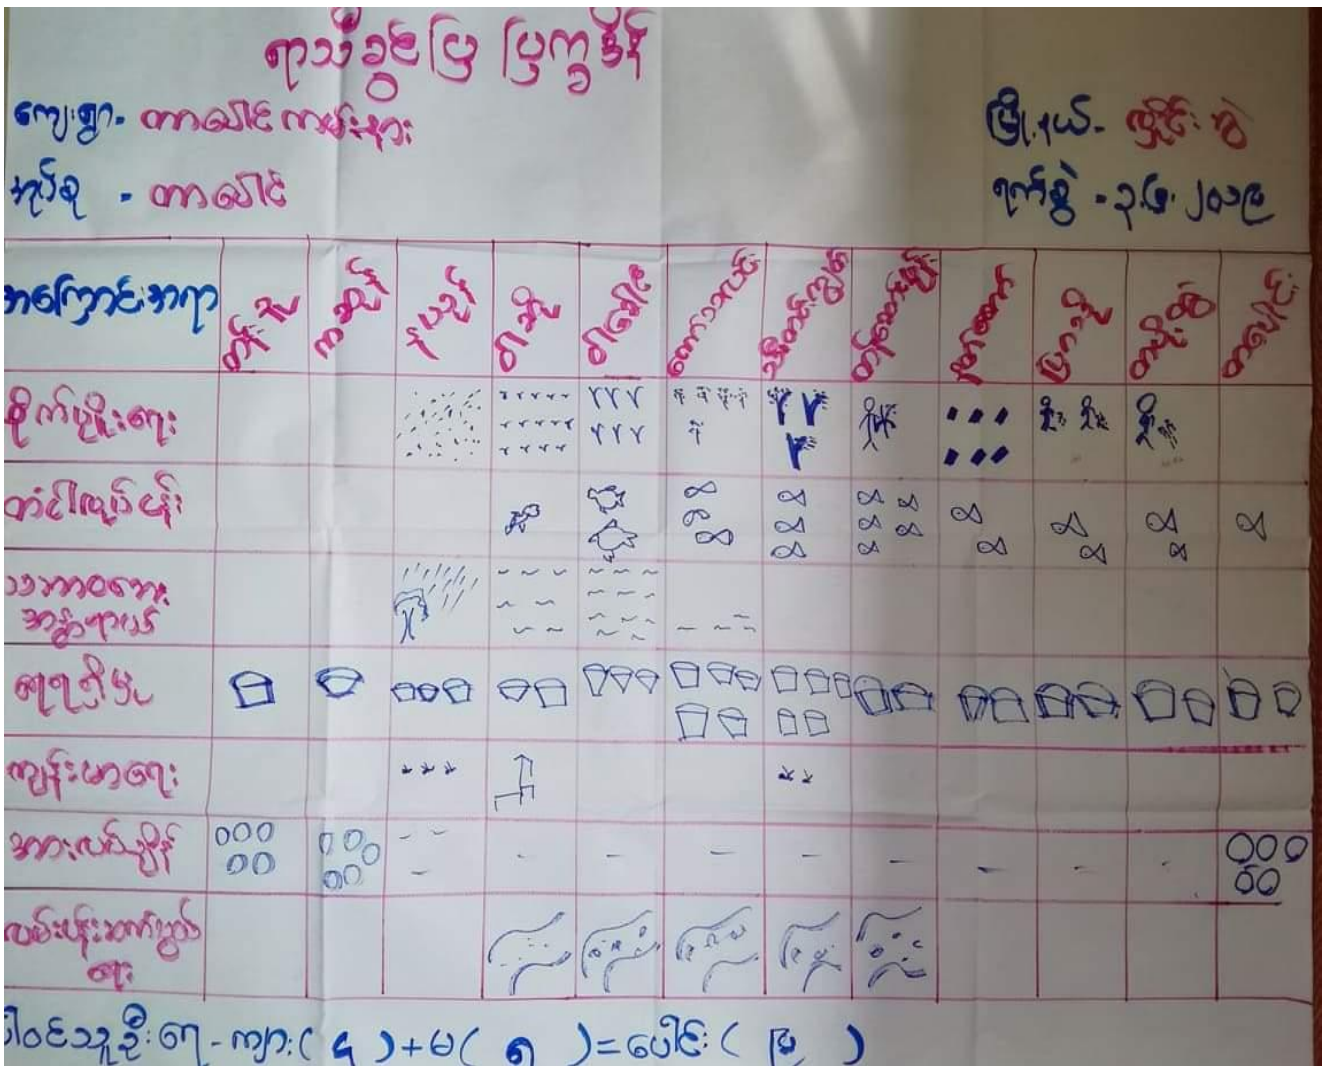 ရာသီခွင်ပြ ပြက္ခဒိန်
ကျေးရွာ - တာပေါင်ကမ်းနား
မြို့နယ် - လှိုင်းဘွဲ
အုပ်စု - တာပေါင်
ရက်စွဲ - ၃.၆.၂၀၁၉
အကြောင်းအရာ တန်ခူး ကဆုန် နယုန် ဝါဆို ဝါခေါင် တော်သလင်း သီတင်းကျွတ် တန်ဆောင်မုန်း နတ်တော် ပြာသို တပို့တွဲ တပေါင်း
စိုက်ပျိုးရေး
တံငါလုပ်ငန်း
သဘာဝဘေး
အန္တရာယ်
ရေရရှိမှု
ကျန်းမာရေး
အားလပ်ချိန်
လမ်းပန်းဆက်သွယ်
ရေး
ပါဝင်သူဦးရေ - ကျား( ) + မ( ) = ပေါင်း( )